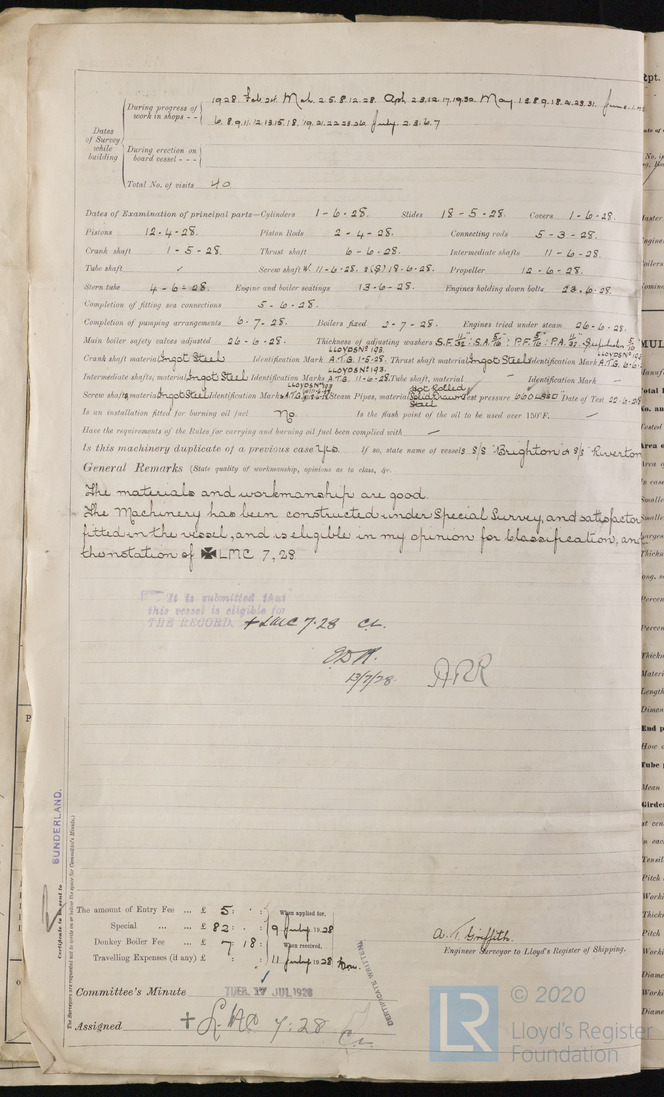 During progress of work in shops - - 1928. Feb. 24. Mch. 2.5.8.12.28. Apl. 2.3.12.17.19.30. May. 1.3.8.9.18.21.23.31. June. 1.
6.8.9.11.12.13.15.18.19.21.22.23.26. July. 2.3.6.7
Dates of Survey while building
During erection on board vessel - - -
Total No. of visits 40
Dates of Examination of principal parts—Cylinders 1-6-28. Slides 18-5-28. Covers 1-6-28.
Pistons 12-4-28. Piston Rods 2-4-28. Connecting rods 5-3-28.
Crank shaft 1-5-28. Thrust shaft 6-6-28. Intermediate shafts 11-6-28.
Tube shaft ✓ Screw shaft W. 11-6-28. S(P) 18-6-28. Propeller 12-6-28.
Stern tube 4-6-28. Engine and boiler seatings 13-6-28. Engines holding down bolts 23-6-28.
Completion of fitting sea connections 5-6-28.
Completion of pumping arrangements 6-7-28. Boilers fixed 2-7-28. Engines tried under steam 26-6-28.
Main boiler safety valves adjusted 26-6-28. Thickness of adjusting washers S.F. S.A. P.F. P.A.
Crank shaft material Ingot Steel Identification Mark LLOYDS No 193. A.T.G. 1-5-28. Thrust shaft material Ingot Steel Identification Mark LLOYDS No 193 A.T.G. 6-6-
Intermediate shafts, material Ingot Steel Identification Marks LLOYDS No 193. A.T.G. 11-6-28. Tube shaft, material Identification Mark —
Screw shaft, material Ingot Steel Identification Mark LLOYDS No 193 A.T.G. Steam Pipes, material Hot Rolled Solid Drawn Steel Test pressure 600 LBS Date of Test 22-6-28
Is an installation fitted for burning oil fuel No. Is the flash point of the oil to be used over 150°F.
Have the requirements of the Rules for carrying and burning oil fuel been complied with
Is this machinery duplicate of a previous case Yes. If so, state name of vessels S/S "Brighton" & S/S "Riverton
General Remarks (State quality of workmanship, opinions as to class, &c.
The materials and workmanship are good.
The Machinery has been constructed under Special Survey, and satisfactor
fitted in the vessel, and is eligible in my opinion for Classification, and
the notation of ✠ LMC 7,28
It is submitted that
this vessel is eligible for
THE RECORD. + LMC 7.28 CL.
13/7/28. ARR
SUNDERLAND.
Certificate to be sent to
(The Surveyors are requested not to write on or below the space for Committee's Minute.)
The amount of Entry Fee ... £ 5 : : When applied for,
Special ... ... £ 82 : . 9 July 1928
Donkey Boiler Fee ... £ 7 18 : When received,
Travelling Expenses (if any) £ : : 11 July 1928
A. T. Griffith.
Engineer Surveyor to Lloyd's Register of Shipping.
CERTIFICATE WRITTEN
Committee's Minute TUES. 17 JUL 1928
Assigned + LMC 7:28
CL
LR © 2020
Lloyd's Register
Foundation